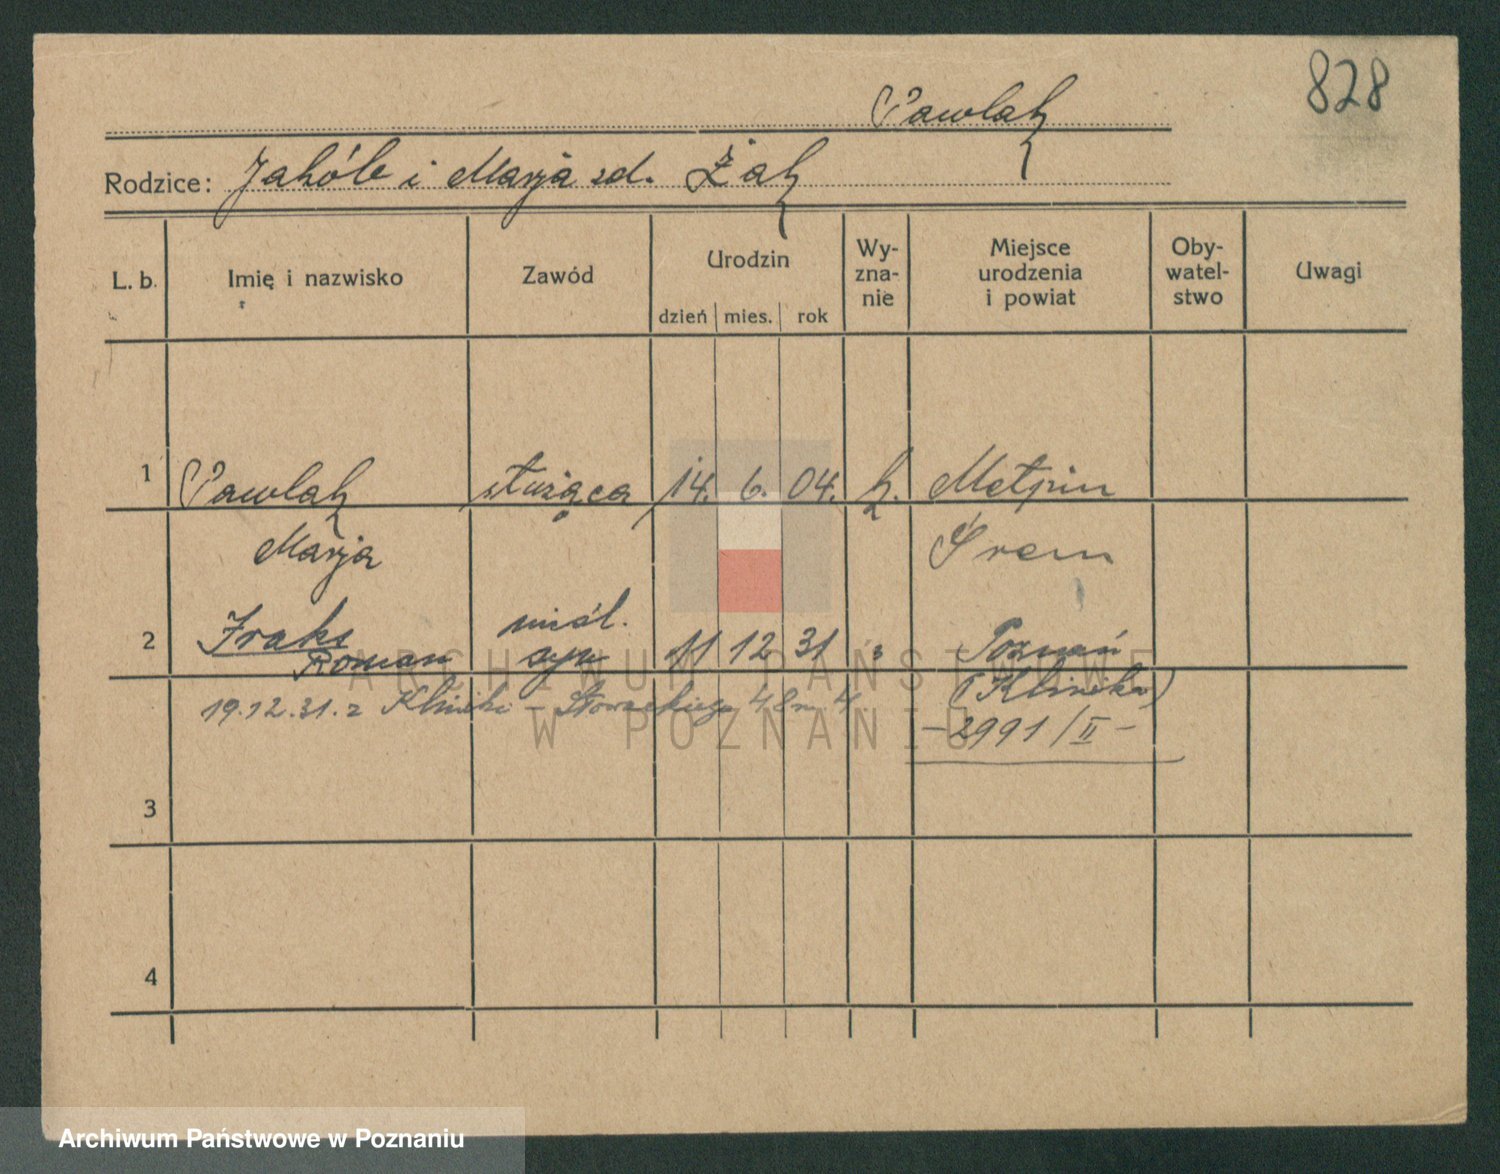 828
Pawlak
Rodzice: Jakób i Marja zd. Żak
L. b. Imię i nazwisko Zawód Urodzin dzień mies. rok Wy-zna-nie Miejsce urodzenia i powiat Oby-watel-stwo Uwagi
1 Pawlak służąca 14. 6. 04. k. Metpin
Marja Śrem
nieśl.
2 Roman syn 11 12 31 " Poznań
19.12.31. z Kliniki - 48 m 4 (Klinika)
- 2991/II -
3
4
ARCHIWUM PAŃSTWOWE
W POZNANIU
Archiwum Państwowe w Poznaniu